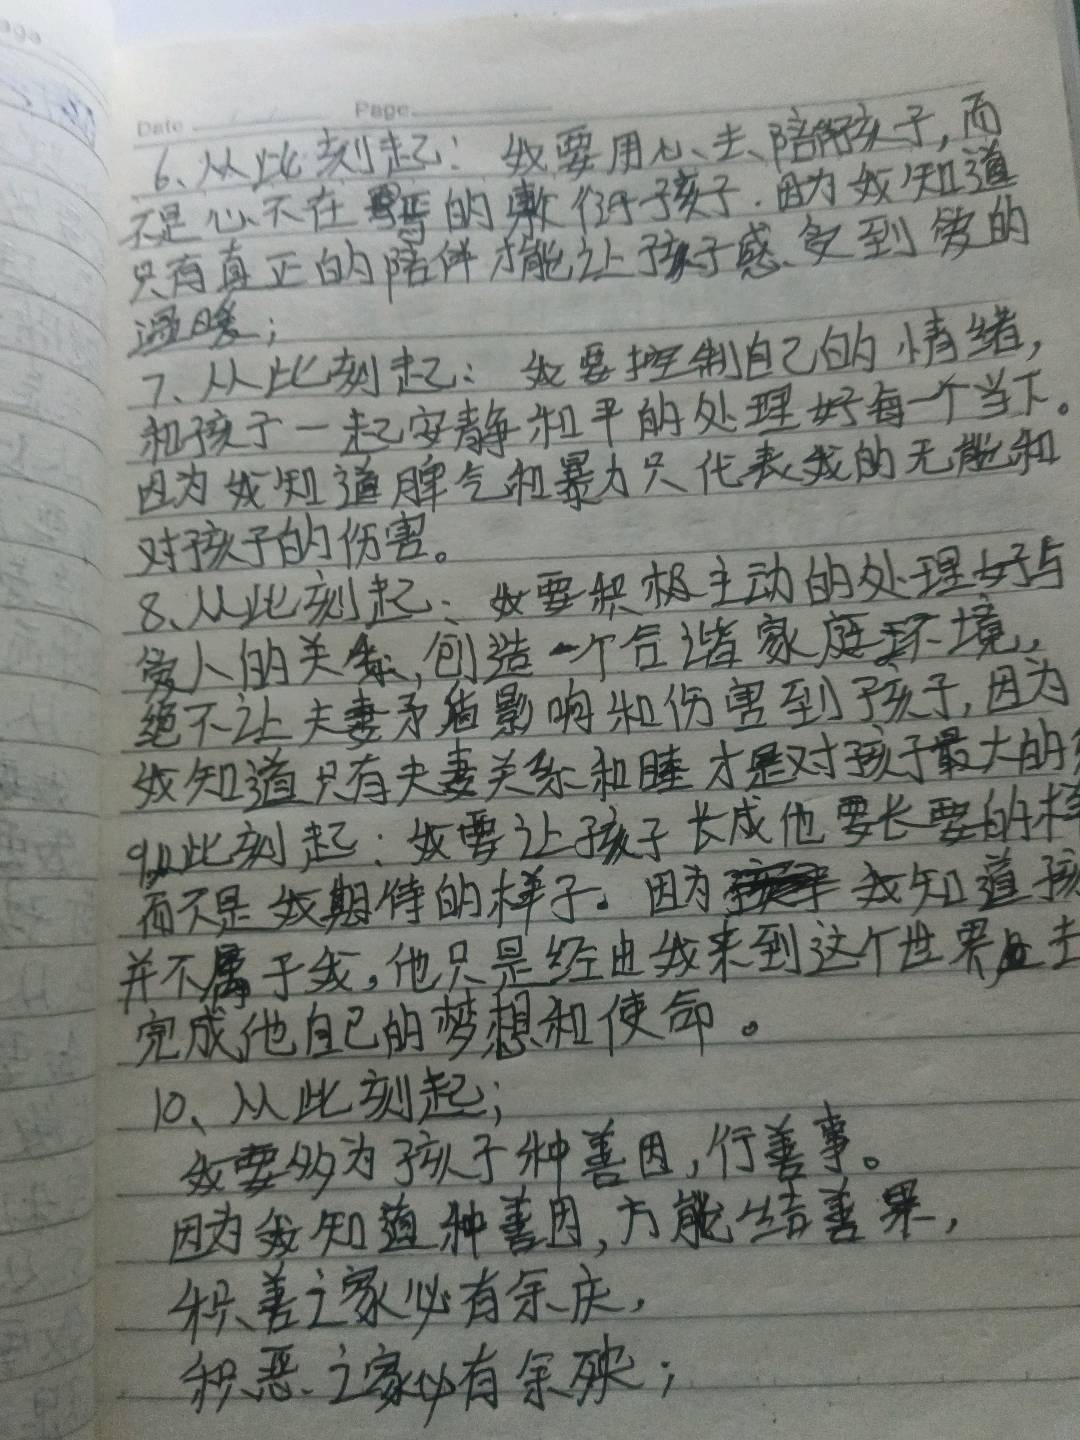 Date Page
6、从此刻起：我要用心去陪伴孩子，而
不是心不在焉的敷衍孩子．因为我知道
只有真正的陪伴才能让孩子感受到爱的
温暖；
7、从此刻起：我要控制自己的情绪，
和孩子一起安静和平的处理好每一个当下。
因为我知道脾气和暴力只代表我的无能和
对孩子的伤害。
8、从此刻起：我要积极主动的处理好与
爱人的关系，创造一个合谐家庭环境，
绝不让夫妻矛盾影响和伤害到孩子，因为
我知道只有夫妻关系和睦才是对孩子最大的
9从此刻起：我要让孩子长成他要长要的样
而不是我期待的样子。因为我知道孩
并不属于我，他只是经由我来到这个世界去
完成他自己的梦想和使命。
10、从此刻起；
我要多为孩子种善因，行善事。
因为我知道种善因，方能结善果，
积善之家必有余庆，
积恶之家必有余殃；